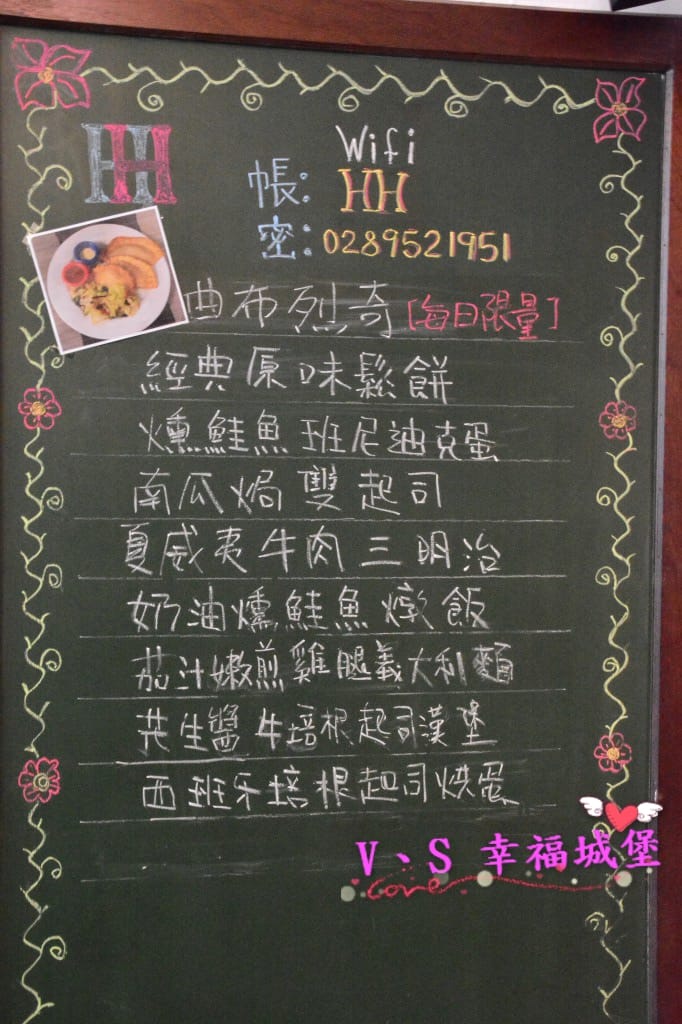 HH
Wifi
帳: HH
密: 0289521951
曲布烈奇 [每日限量]
經典原味鬆餅
燻鮭魚班尼迪克蛋
南瓜焗雙起司
夏威夷牛肉三明治
奶油燻鮭魚燉飯
茄汁嫩煎雞腿義大利麵
花生醬牛培根起司漢堡
西班牙培根起司烘蛋
V、S 幸福城堡
Love